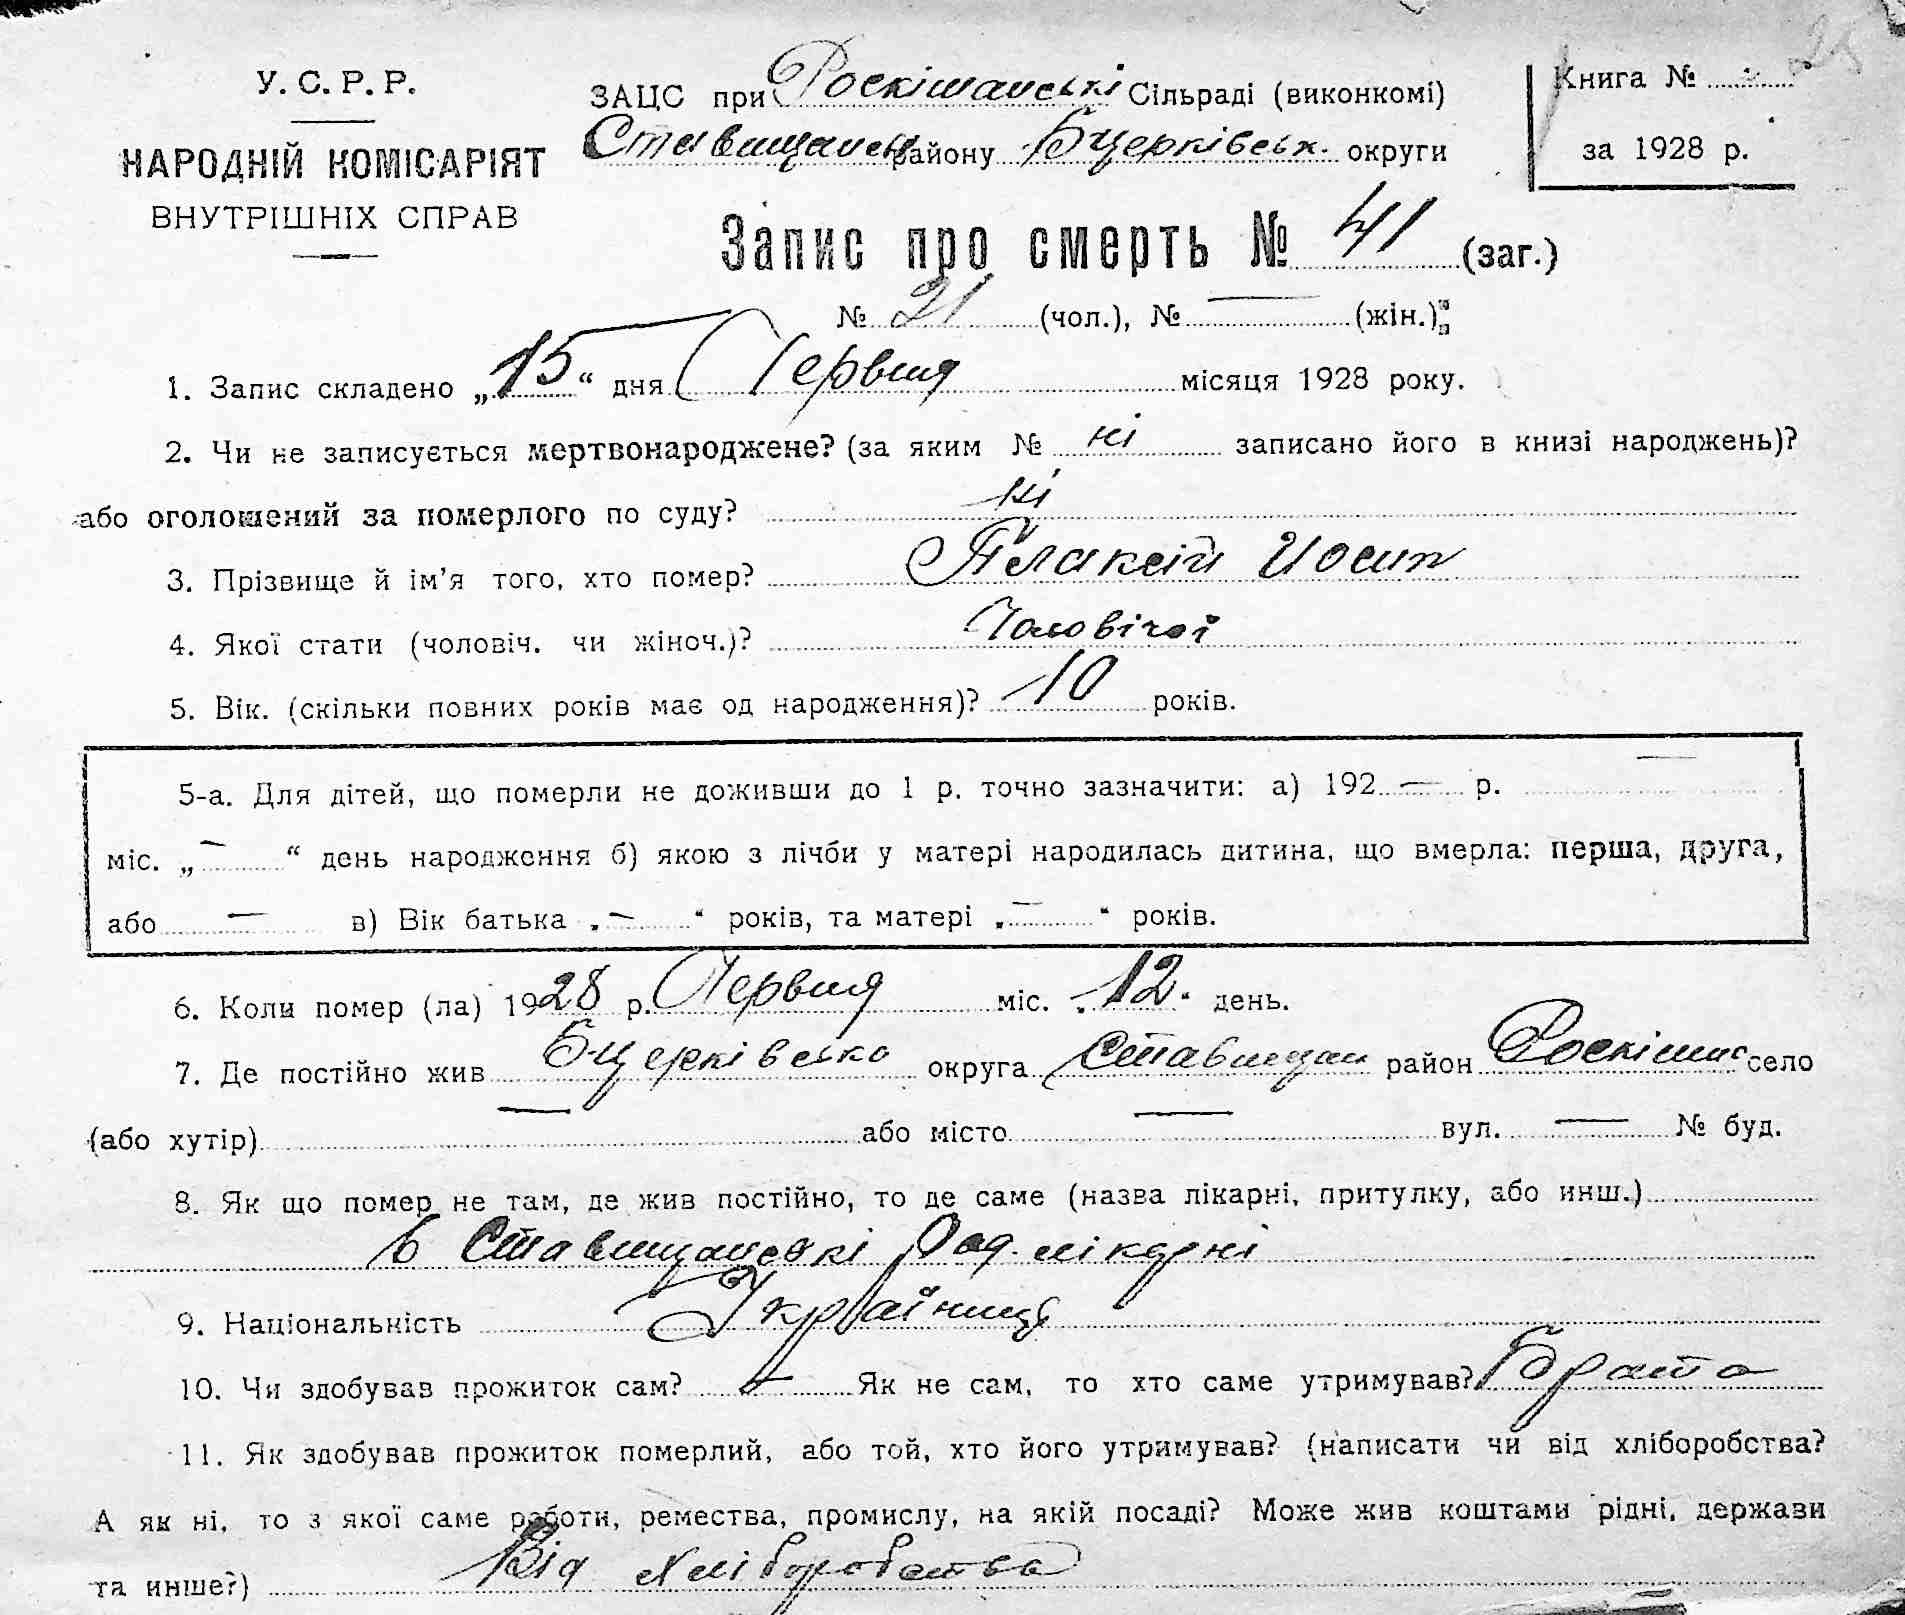 У. С. Р. Р.
НАРОДНІЙ КОМІСАРІЯТ
ВНУТРІШНІХ СПРАВ
ЗАЦС при Роскішанські Сільраді (виконкомі)
Ставищанськ району Бцерківськ. округи
Книга №
за 1928 р.
Запис про смерть № 41 (заг.)
№ 21 (чол.), № — (жін.)
1. Запис складено „15“ дня Червня місяця 1928 року.
2. Чи не записується мертвонароджене? (за яким № ні записано його в книзі народжень)?
або оголошений за померлого по суду? ні
3. Прізвище й ім’я того, хто помер? Плаксій Иосип
4. Якої стати (чоловіч. чи жіноч.)? Чоловічої
5. Вік. (скільки повних років має од народження)? 10 років.
5-а. Для дітей, що померли не доживши до 1 р. точно зазначити: а) 192 — р. —
міс. „—“ день народження б) якою з лічби у матері народилась дитина, що вмерла: перша, друга,
або — в) Вік батька „—“ років, та матері „—“ років.
6. Коли помер (ла) 1928 р. Червня міс. „12“ день.
7. Де постійно жив Бцерківсько округа Ставищан район Роскішна село
(або хутір) — або місто — вул. — № буд.
8. Як що помер не там, де жив постійно, то де саме (назва лікарні, притулку, або инш.)
в Ставищанські Рад. лікарні
9. Національність Українець
10. Чи здобував прожиток сам? — Як не сам, то хто саме утримував? Брата
11. Як здобував прожиток померлий, або той, хто його утримував? (написати чи від хліборобства?
А як ні, то з якої саме роботи, ремества, промислу, на якій посаді? Може жив коштами рідні, держави
та инше?) Від хліборобства